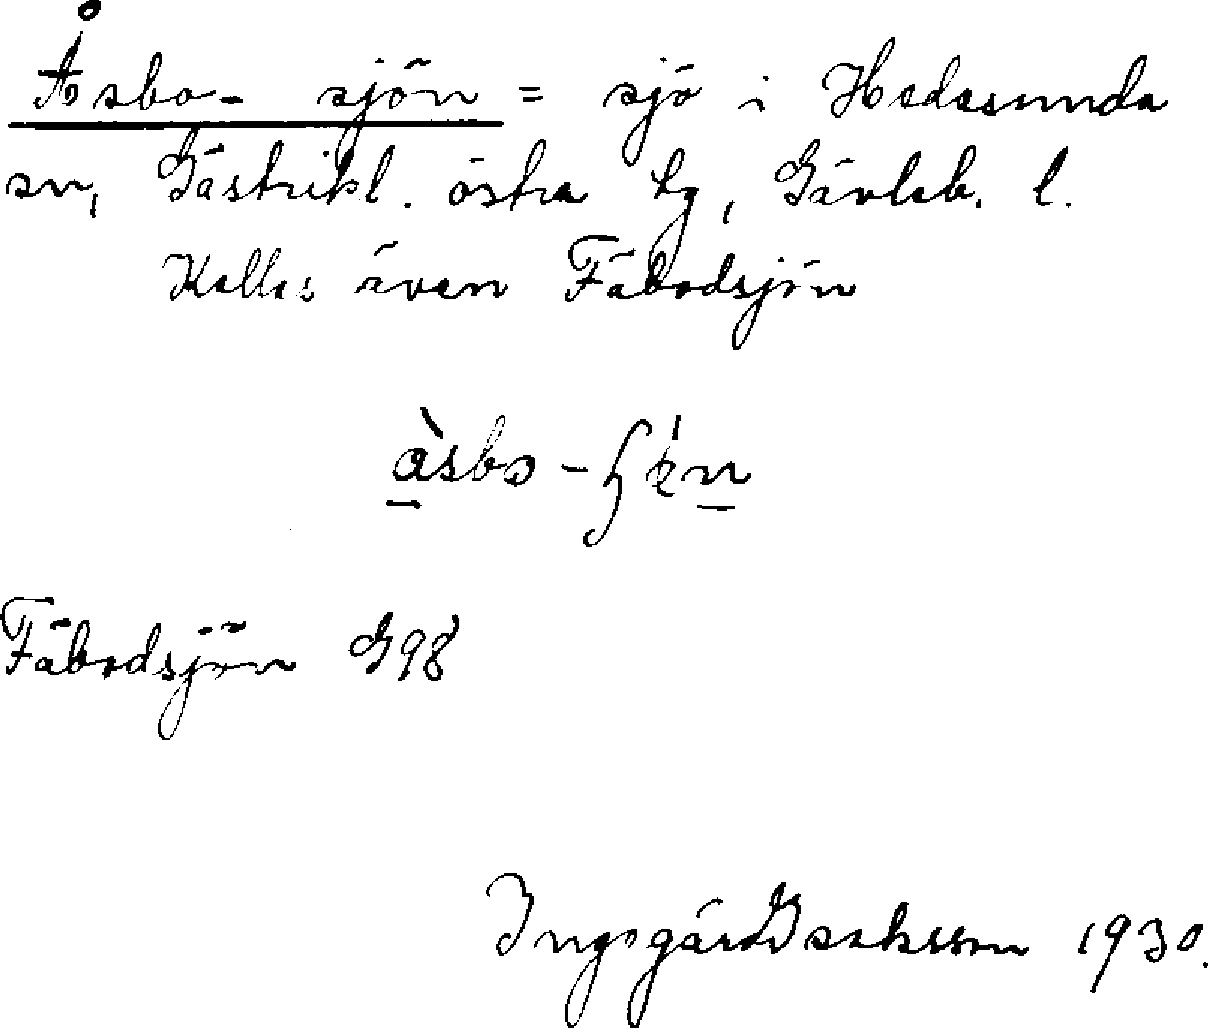 Åsbo-sjön = sjö i Hedesunda
sn, Gästrikl. östra tg, Gävleb. l.
Kallas även Fäbodsjön
Fäbodsjön G98
Ingegärd Isaksson 1930.